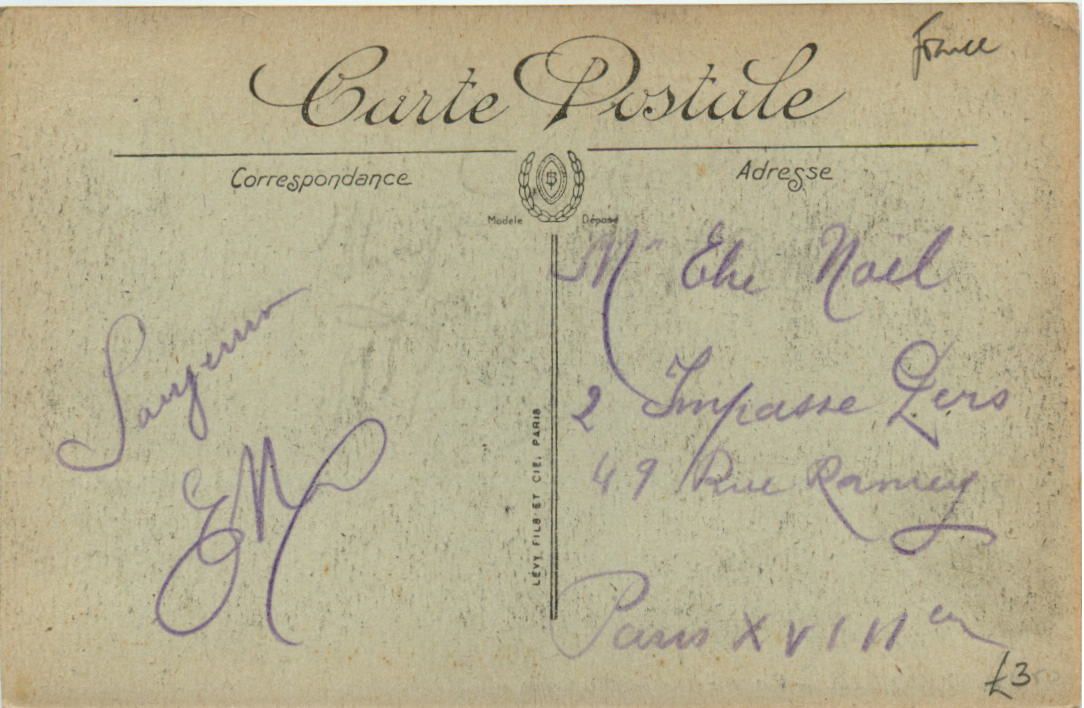 France
Carte Postale
Correspondance
Adresse
Modèle Déposé
LÉVY FILS ET CIE, PARIS
Mr Elie Noël
2 Impasse Pers
49 Rue Ramey
Paris XVIII
EN
£3